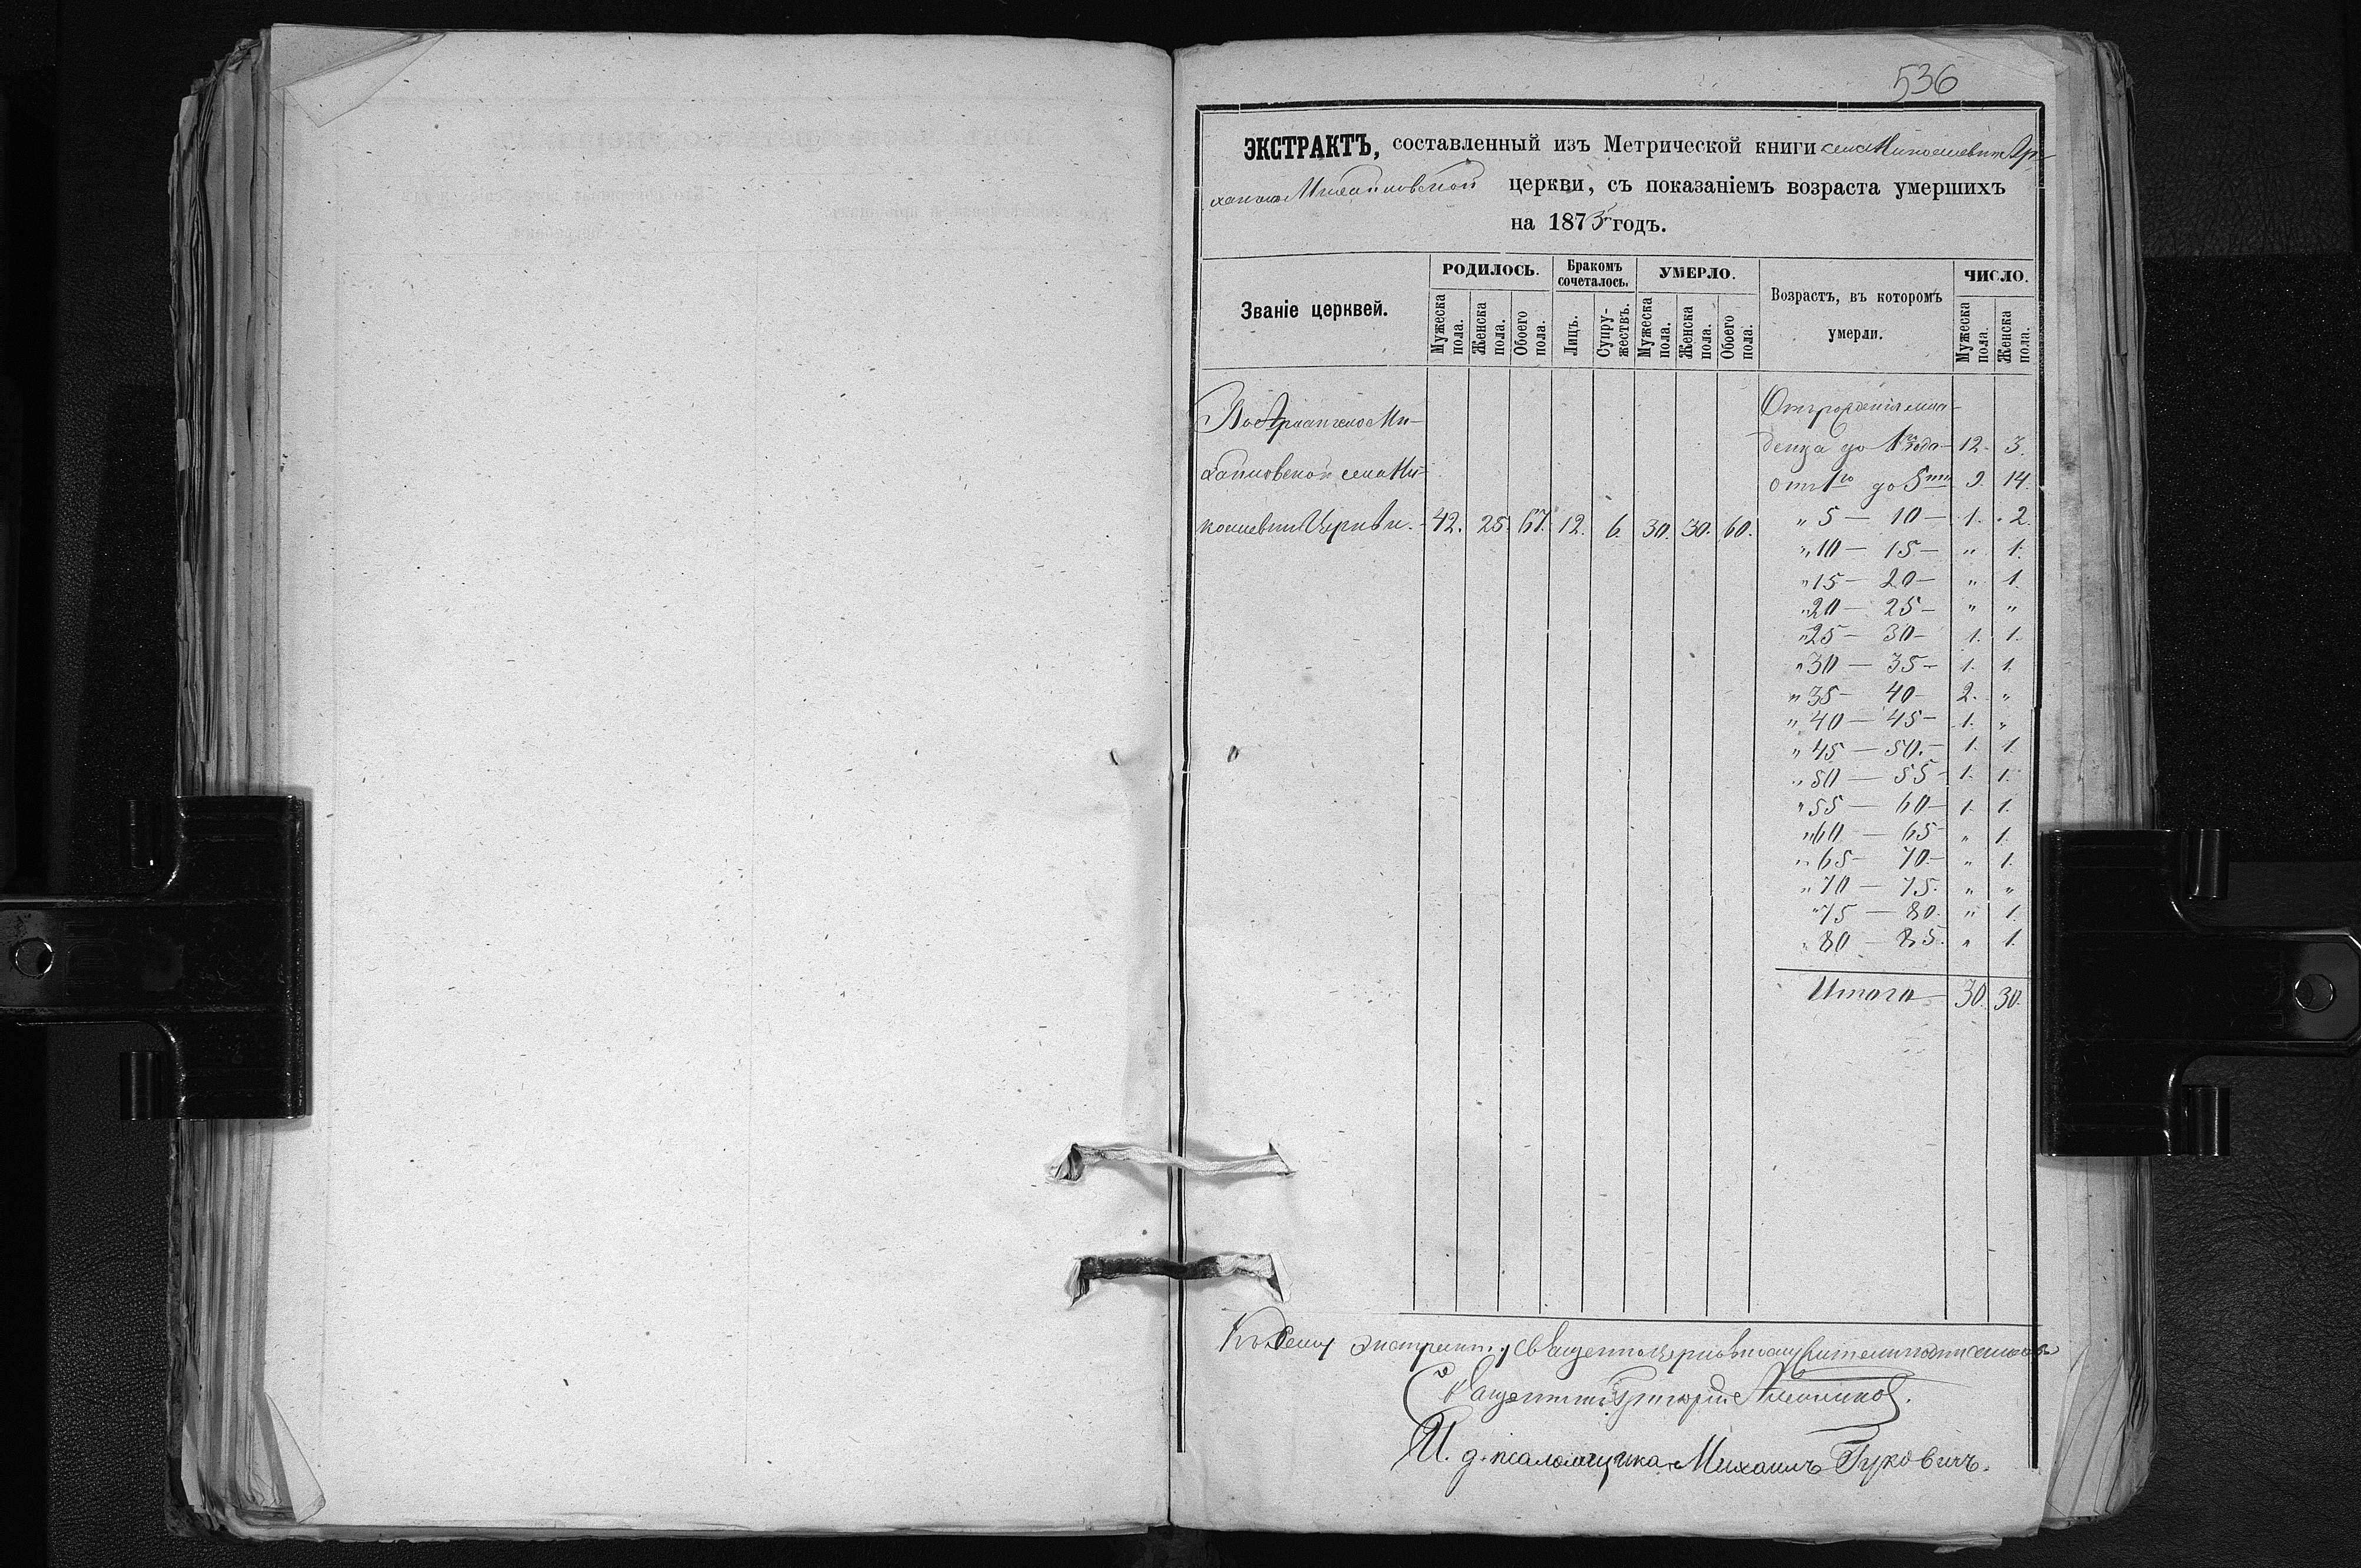 536
ЭКСТРАКТЪ, составленный изъ Метрической книги села Ар-
хангело Михайловской церкви, съ показаніемъ возраста умершихъ
на 1875 годъ.
Званіе церквей.
РОДИЛОСЬ.
Мужеска пола.
Женска пола.
Обоего пола.
Бракомъ сочеталось.
Лицъ.
Супружествъ.
УМЕРЛО.
Мужеска пола.
Женска пола.
Обоего пола.
Возрастъ, въ которомъ
умерли.
ЧИСЛО.
Мужеска пола
Женска пола.
Во Архангело Ми-
хайловской села Ми-
Церкви. 42. 25. 67. 12. 6. 30. 30. 60.
Отъ рожденія мла-
денца до 1го года 12. 3.
отъ 1го до 5ти 9. 14.
„ 5 — 10 — 1. 2.
„ 10 — 15 — „ 1.
„ 15 — 20 — „ 1.
„ 20 — 25 — „ „
„ 25 — 30 — 1. 1.
„ 30 — 35 — 1. 1.
„ 35 — 40 — 2. „
„ 40 — 45 — 1. „
„ 45 — 50. — 1. 1.
„ 50 — 55 — 1. 1.
„ 55 — 60 — 1. 1.
„ 60 — 65 „ 1.
„ 65 — 70 — „ 1.
„ 70 — 75. „ „
„ 75 — 80. „ 1.
„ 80 — 85. „ 1.
Итого — 30. 30.
Къ сему экстракту священноцерковнослужители подписались
Священникъ Григорій
И. д. псаломщика Михаилъ Гуковичъ.